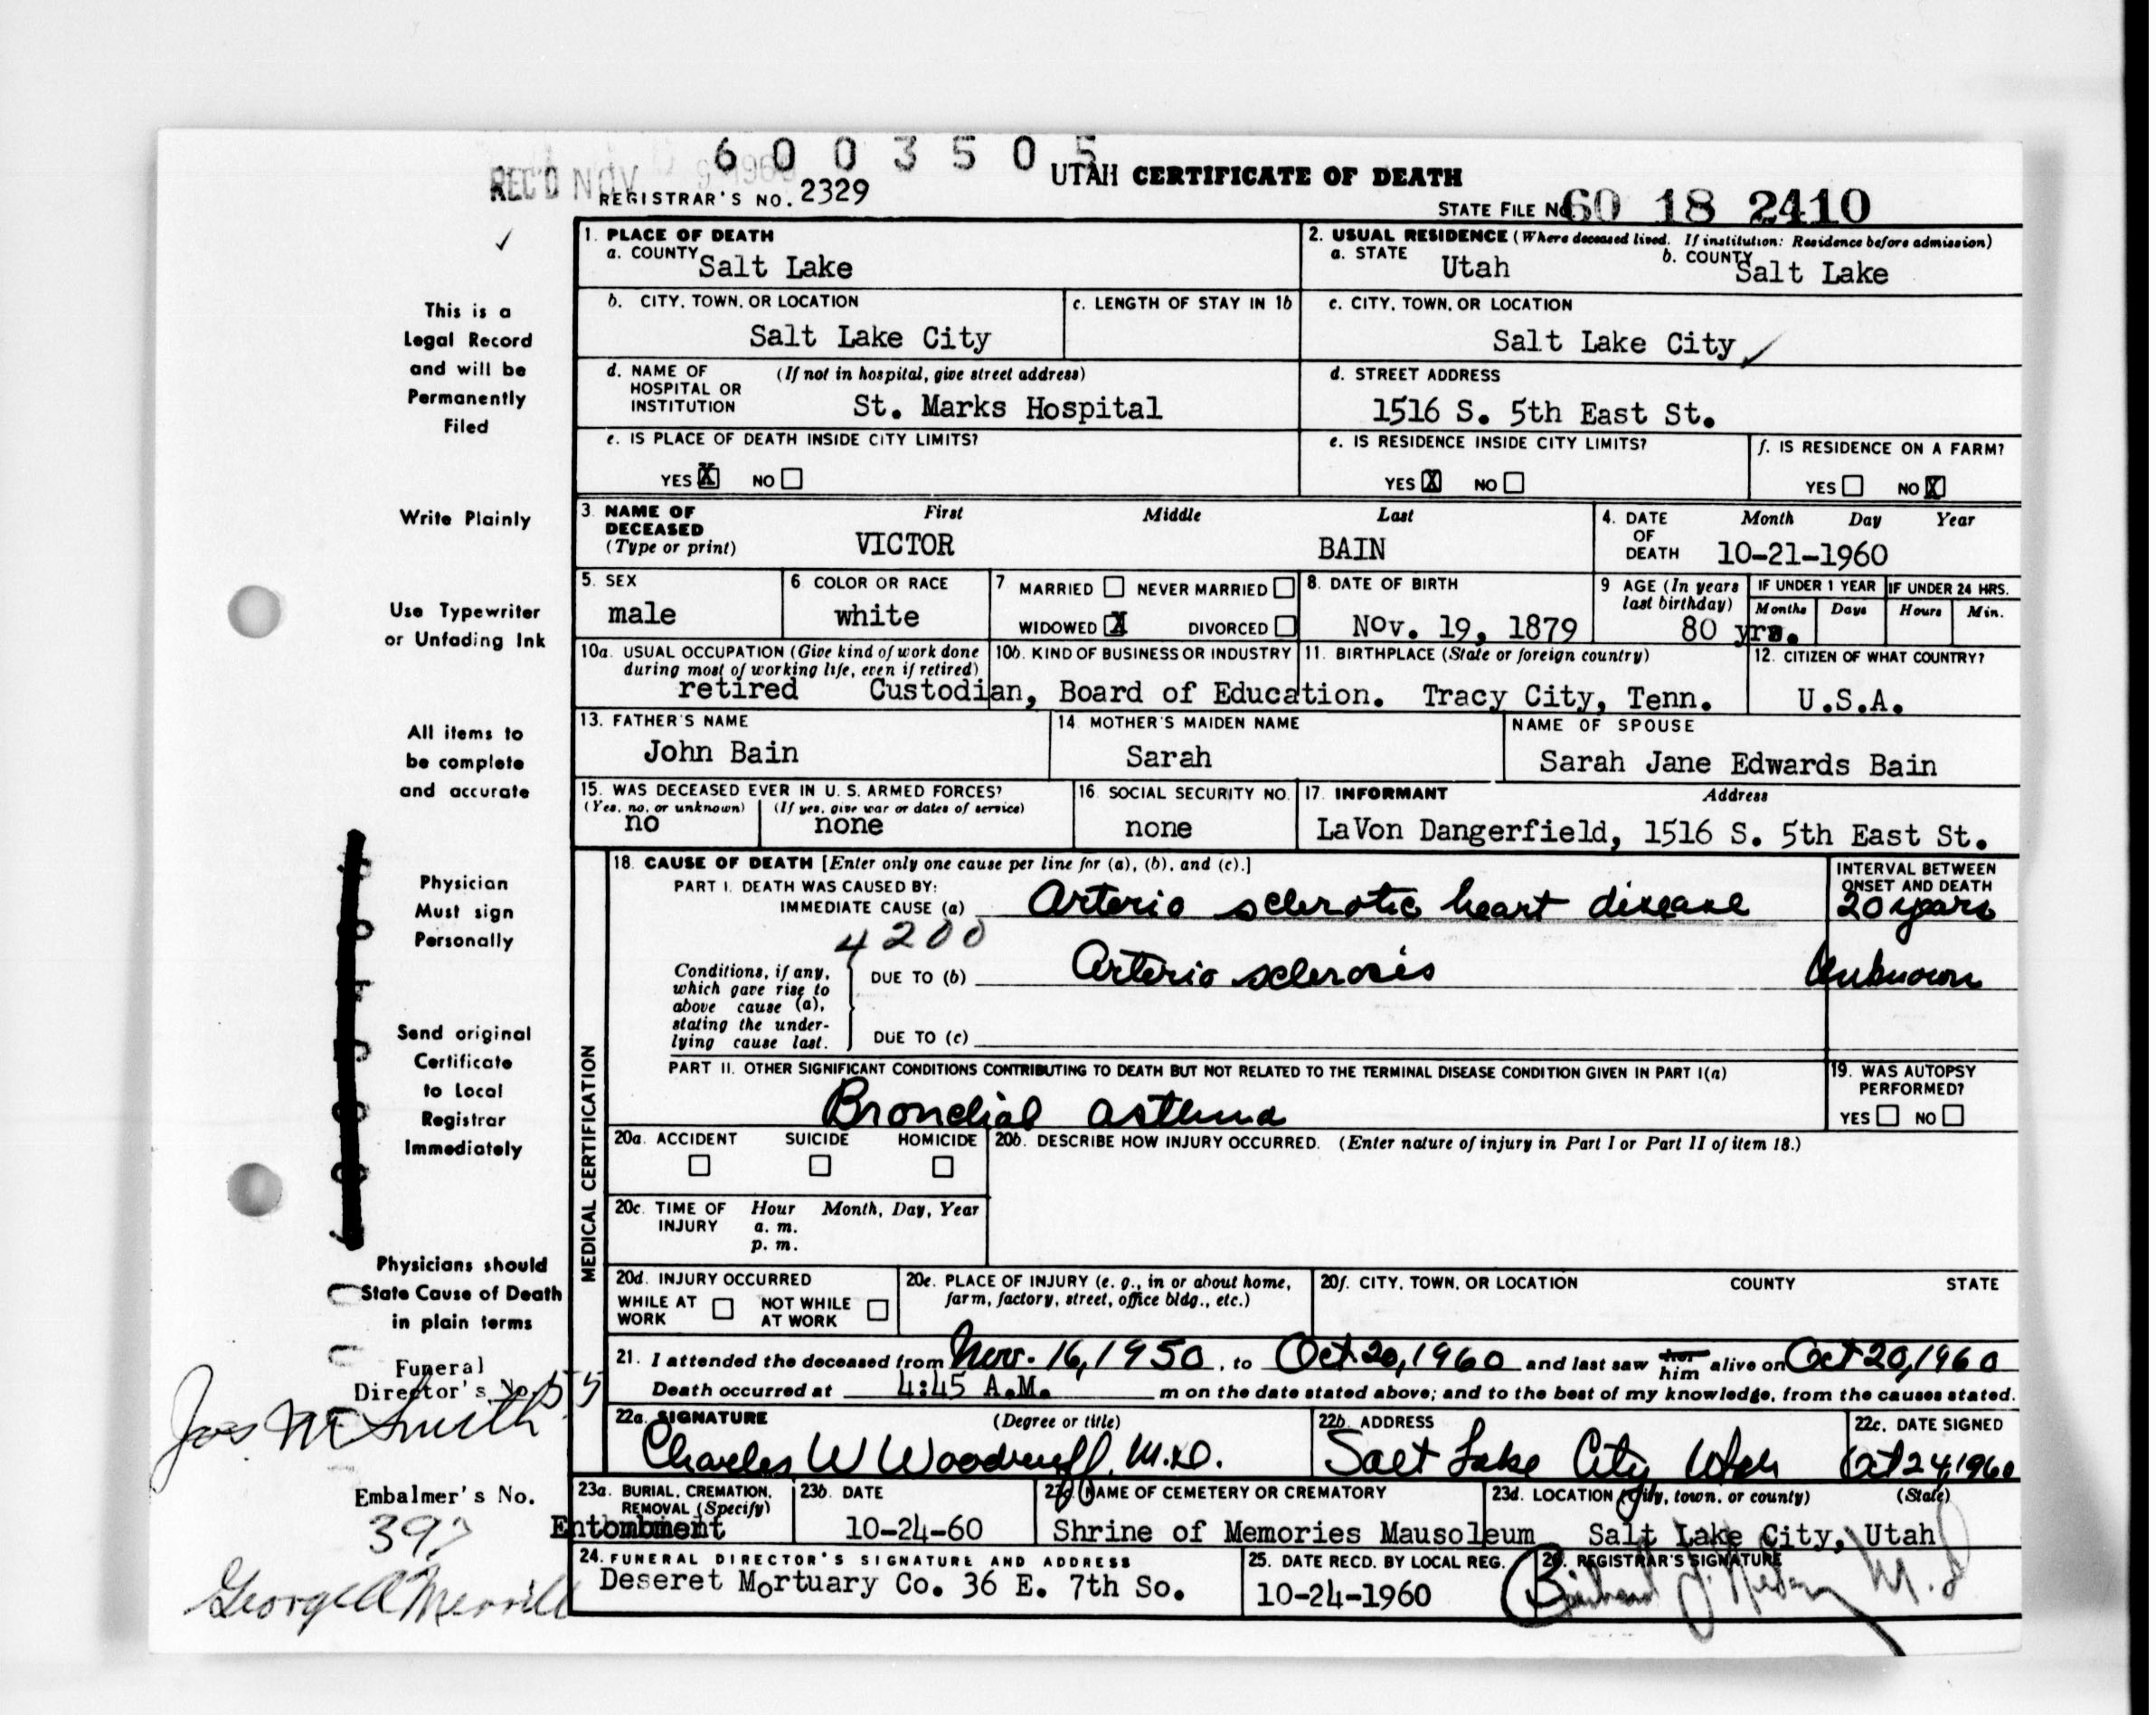 6 0 0 3 5 0 5
REC'D NOV 9 196
UTAH CERTIFICATE OF DEATH
REGISTRAR'S NO. 2329
STATE FILE NO. 60 18 2410
1. PLACE OF DEATH
a. COUNTY Salt Lake
2. USUAL RESIDENCE (Where deceased lived. If institution: Residence before admission)
a. STATE Utah b. COUNTY Salt Lake
This is a
Legal Record
and will be
Permanently
Filed
b. CITY, TOWN, OR LOCATION
Salt Lake City
c. LENGTH OF STAY IN 1b
c. CITY, TOWN, OR LOCATION
Salt Lake City
d. NAME OF HOSPITAL OR INSTITUTION (If not in hospital, give street address)
St. Marks Hospital
d. STREET ADDRESS
1516 S. 5th East St.
e. IS PLACE OF DEATH INSIDE CITY LIMITS?
YES X NO
e. IS RESIDENCE INSIDE CITY LIMITS?
YES X NO
f. IS RESIDENCE ON A FARM?
YES NO X
Write Plainly
3. NAME OF DECEASED (Type or print)
First Middle Last
VICTOR BAIN
4. DATE OF DEATH Month Day Year
10-21-1960
Use Typewriter
or Unfading Ink
5. SEX
male
6. COLOR OR RACE
white
7. MARRIED NEVER MARRIED
WIDOWED X DIVORCED
8. DATE OF BIRTH
Nov. 19, 1879
9. AGE (In years last birthday)
80 yrs.
IF UNDER 1 YEAR
Months Days
IF UNDER 24 HRS.
Hours Min.
10a. USUAL OCCUPATION (Give kind of work done during most of working life, even if retired)
10b. KIND OF BUSINESS OR INDUSTRY
retired Custodian, Board of Education.
11. BIRTHPLACE (State or foreign country)
Tracy City, Tenn.
12. CITIZEN OF WHAT COUNTRY?
U.S.A.
All items to
be complete
and accurate
13. FATHER'S NAME
John Bain
14. MOTHER'S MAIDEN NAME
Sarah
NAME OF SPOUSE
Sarah Jane Edwards Bain
15. WAS DECEASED EVER IN U. S. ARMED FORCES?
(Yes, no, or unknown) (If yes, give war or dates of service)
no none
16. SOCIAL SECURITY NO.
none
17. INFORMANT Address
LaVon Dangerfield, 1516 S. 5th East St.
Physician
Must sign
Personally
MEDICAL CERTIFICATION
18. CAUSE OF DEATH [Enter only one cause per line for (a), (b), and (c).]
INTERVAL BETWEEN ONSET AND DEATH
PART I. DEATH WAS CAUSED BY:
IMMEDIATE CAUSE (a) Arterio sclerotic heart disease 20 years
4200
Conditions, if any, which gave rise to above cause (a), stating the underlying cause last.
DUE TO (b) Arterio sclerosis Unknown
DUE TO (c)
PART II. OTHER SIGNIFICANT CONDITIONS CONTRIBUTING TO DEATH BUT NOT RELATED TO THE TERMINAL DISEASE CONDITION GIVEN IN PART I(a)
Bronchial asthma
19. WAS AUTOPSY PERFORMED?
YES NO
Send original
Certificate
to Local
Registrar
Immediately
20a. ACCIDENT SUICIDE HOMICIDE
20b. DESCRIBE HOW INJURY OCCURRED. (Enter nature of injury in Part I or Part II of item 18.)
20c. TIME OF INJURY Hour Month, Day, Year
a. m.
p. m.
Physicians should
State Cause of Death
in plain terms
20d. INJURY OCCURRED
WHILE AT WORK NOT WHILE AT WORK
20e. PLACE OF INJURY (e. g., in or about home, farm, factory, street, office bldg., etc.)
20f. CITY, TOWN, OR LOCATION COUNTY STATE
21. I attended the deceased from Nov. 16, 1950, to Oct 20, 1960 and last saw her him alive on Oct 20, 1960
Death occurred at 4:45 A.M. m on the date stated above; and to the best of my knowledge, from the causes stated.
Funeral
Director's No.
Jos M Smith
22a. SIGNATURE (Degree or title)
Charles W Woodruff, M.D.
22b. ADDRESS
Salt Lake City Utah
22c. DATE SIGNED
Oct 24, 1960
Embalmer's No.
George A Merrill
23a. BURIAL, CREMATION, REMOVAL (Specify)
Entombment
23b. DATE
10-24-60
23c. NAME OF CEMETERY OR CREMATORY
Shrine of Memories Mausoleum
23d. LOCATION (City, town, or county) (State)
Salt Lake City, Utah
24. FUNERAL DIRECTOR'S SIGNATURE AND ADDRESS
Deseret Mortuary Co. 36 E. 7th So.
25. DATE RECD. BY LOCAL REG.
10-24-1960
26. REGISTRAR'S SIGNATURE